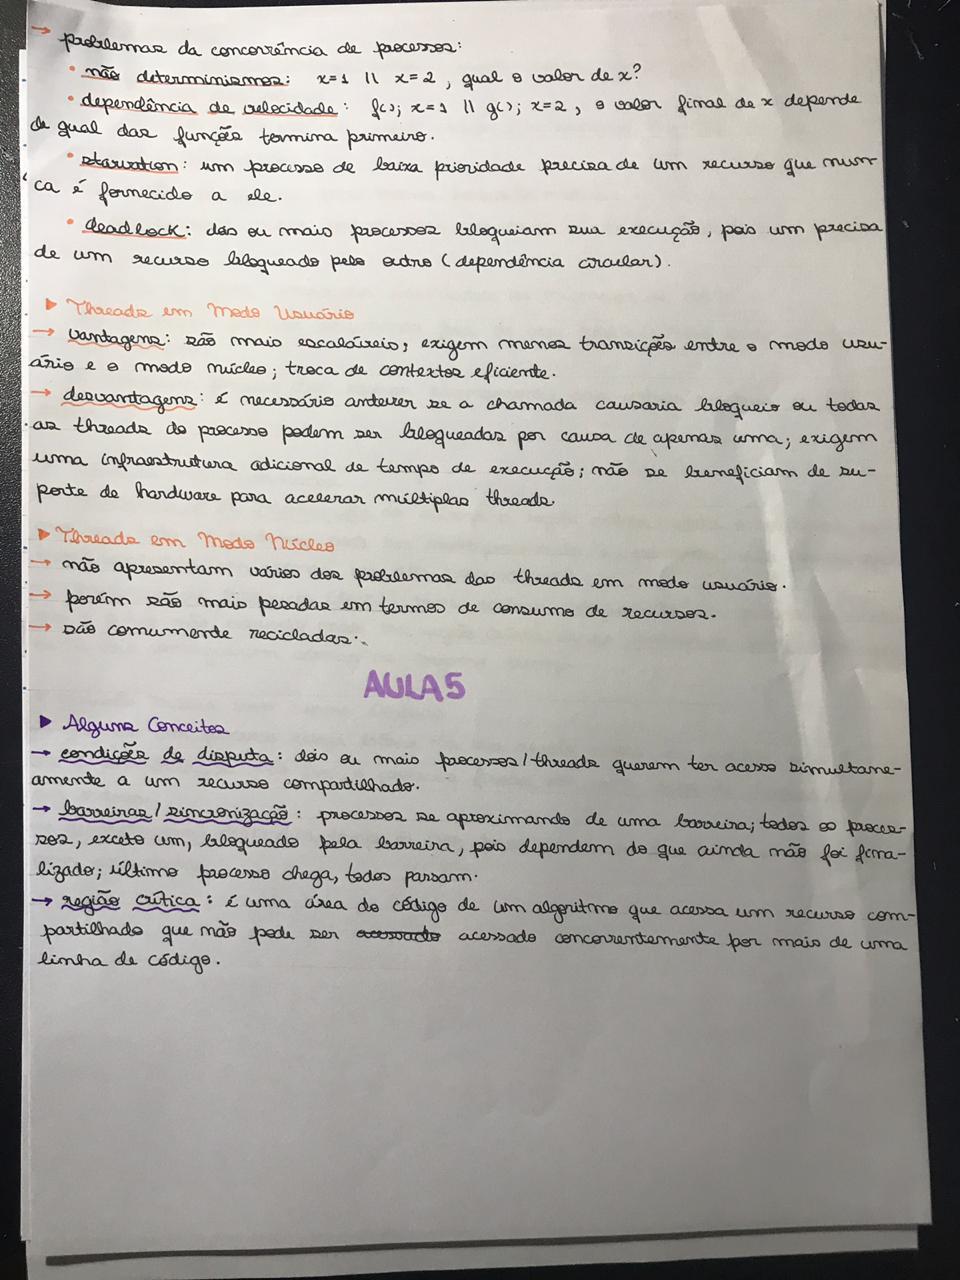 → problemas da concorrência de processos:
• não determinismos: x=1 || x=2, qual o valor de x?
• dependência de velocidade: f(); x=1 || g(); x=2, o valor final de x depende
de qual das função termina primeiro.
• starvation: um processo de baixa prioridade precisa de um recurso que nun-
ca é fornecido a ele.
• deadlock: dois ou mais processos bloqueiam sua execução, pois um precisa
de um recurso bloqueado pelo outro (dependência circular).
▶ Threads em Modo Usuário
→ vantagens: são mais escaláveis; exigem menos transições entre o modo usu-
ário e o modo núcleo; troca de contextos eficiente.
→ desvantagens: é necessário antever se a chamada causaria bloqueio ou todas
as threads do processo podem ser bloqueadas por causa de apenas uma; exigem
uma infraestrutura adicional de tempo de execução; não se beneficiam de su-
porte de hardware para acelerar múltiplas threads.
▶ Threads em Modo Núcleo
→ não apresentam vários dos problemas das threads em modo usuário.
→ porém são mais pesadas em termos de consumo de recursos.
→ são comumente recicladas.
AULA 5
▶ Alguns Conceitos
→ condições de disputa: dois ou mais processos/threads querem ter acesso simultane-
amente a um recurso compartilhado.
→ barreiras/sincronização: processos se aproximando de uma barreira; todos os proces-
sos, exceto um, bloqueado pela barreira, pois dependem do que ainda não foi fina-
lizado; último processo chega, todos passam.
→ região crítica: é uma área do código de um algoritmo que acessa um recurso com-
partilhado que não pode ser acessado concorrentemente por mais de uma
linha de código.